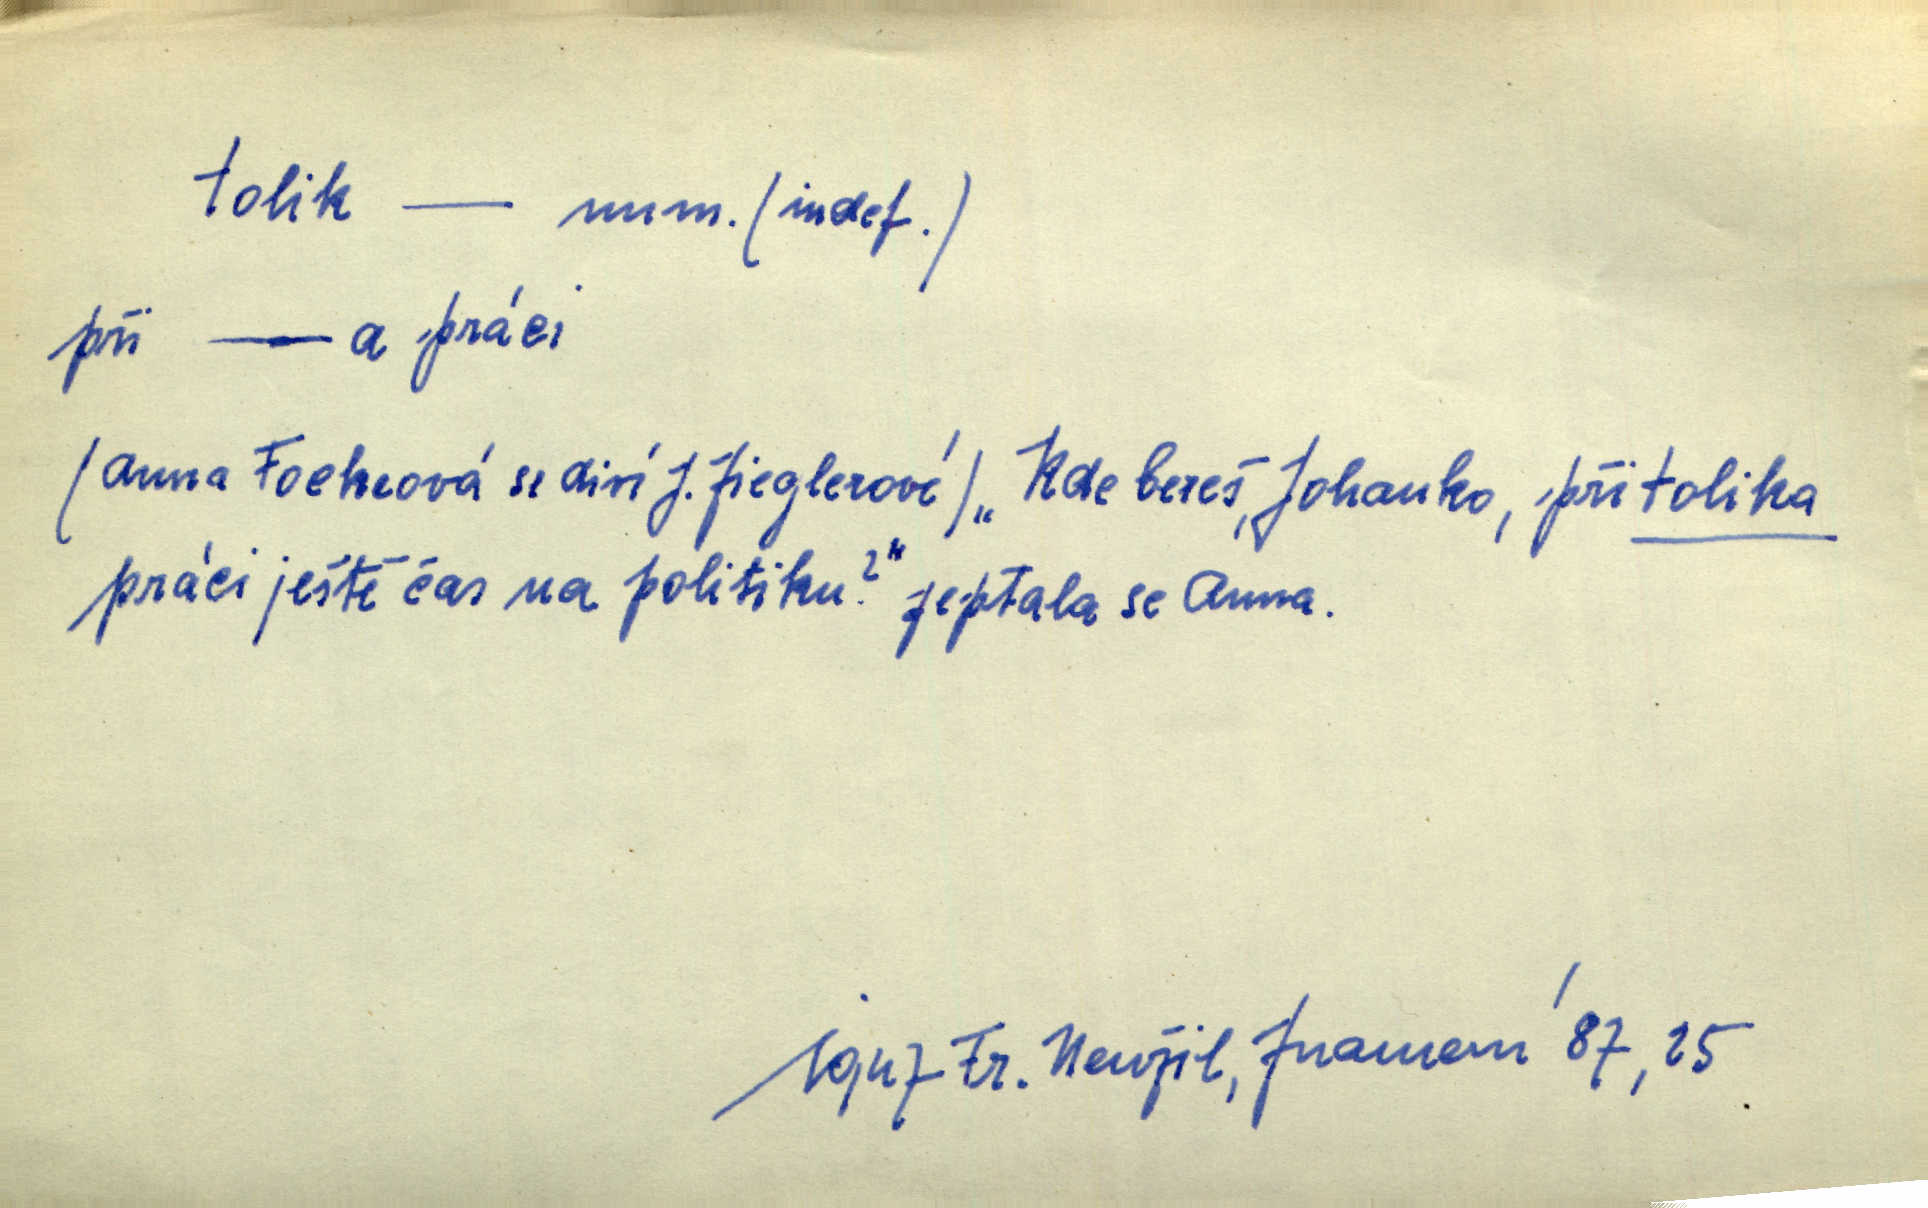 tolik — num. (indef.)
při —a práci
(Anna Fochrová se diví J. Zieglerové) „Kde bereš, Johanko, při tolika
práci ještě čas na politiku?“ zeptala se Anna.
Fr. Neužil, Znamení 87, 25